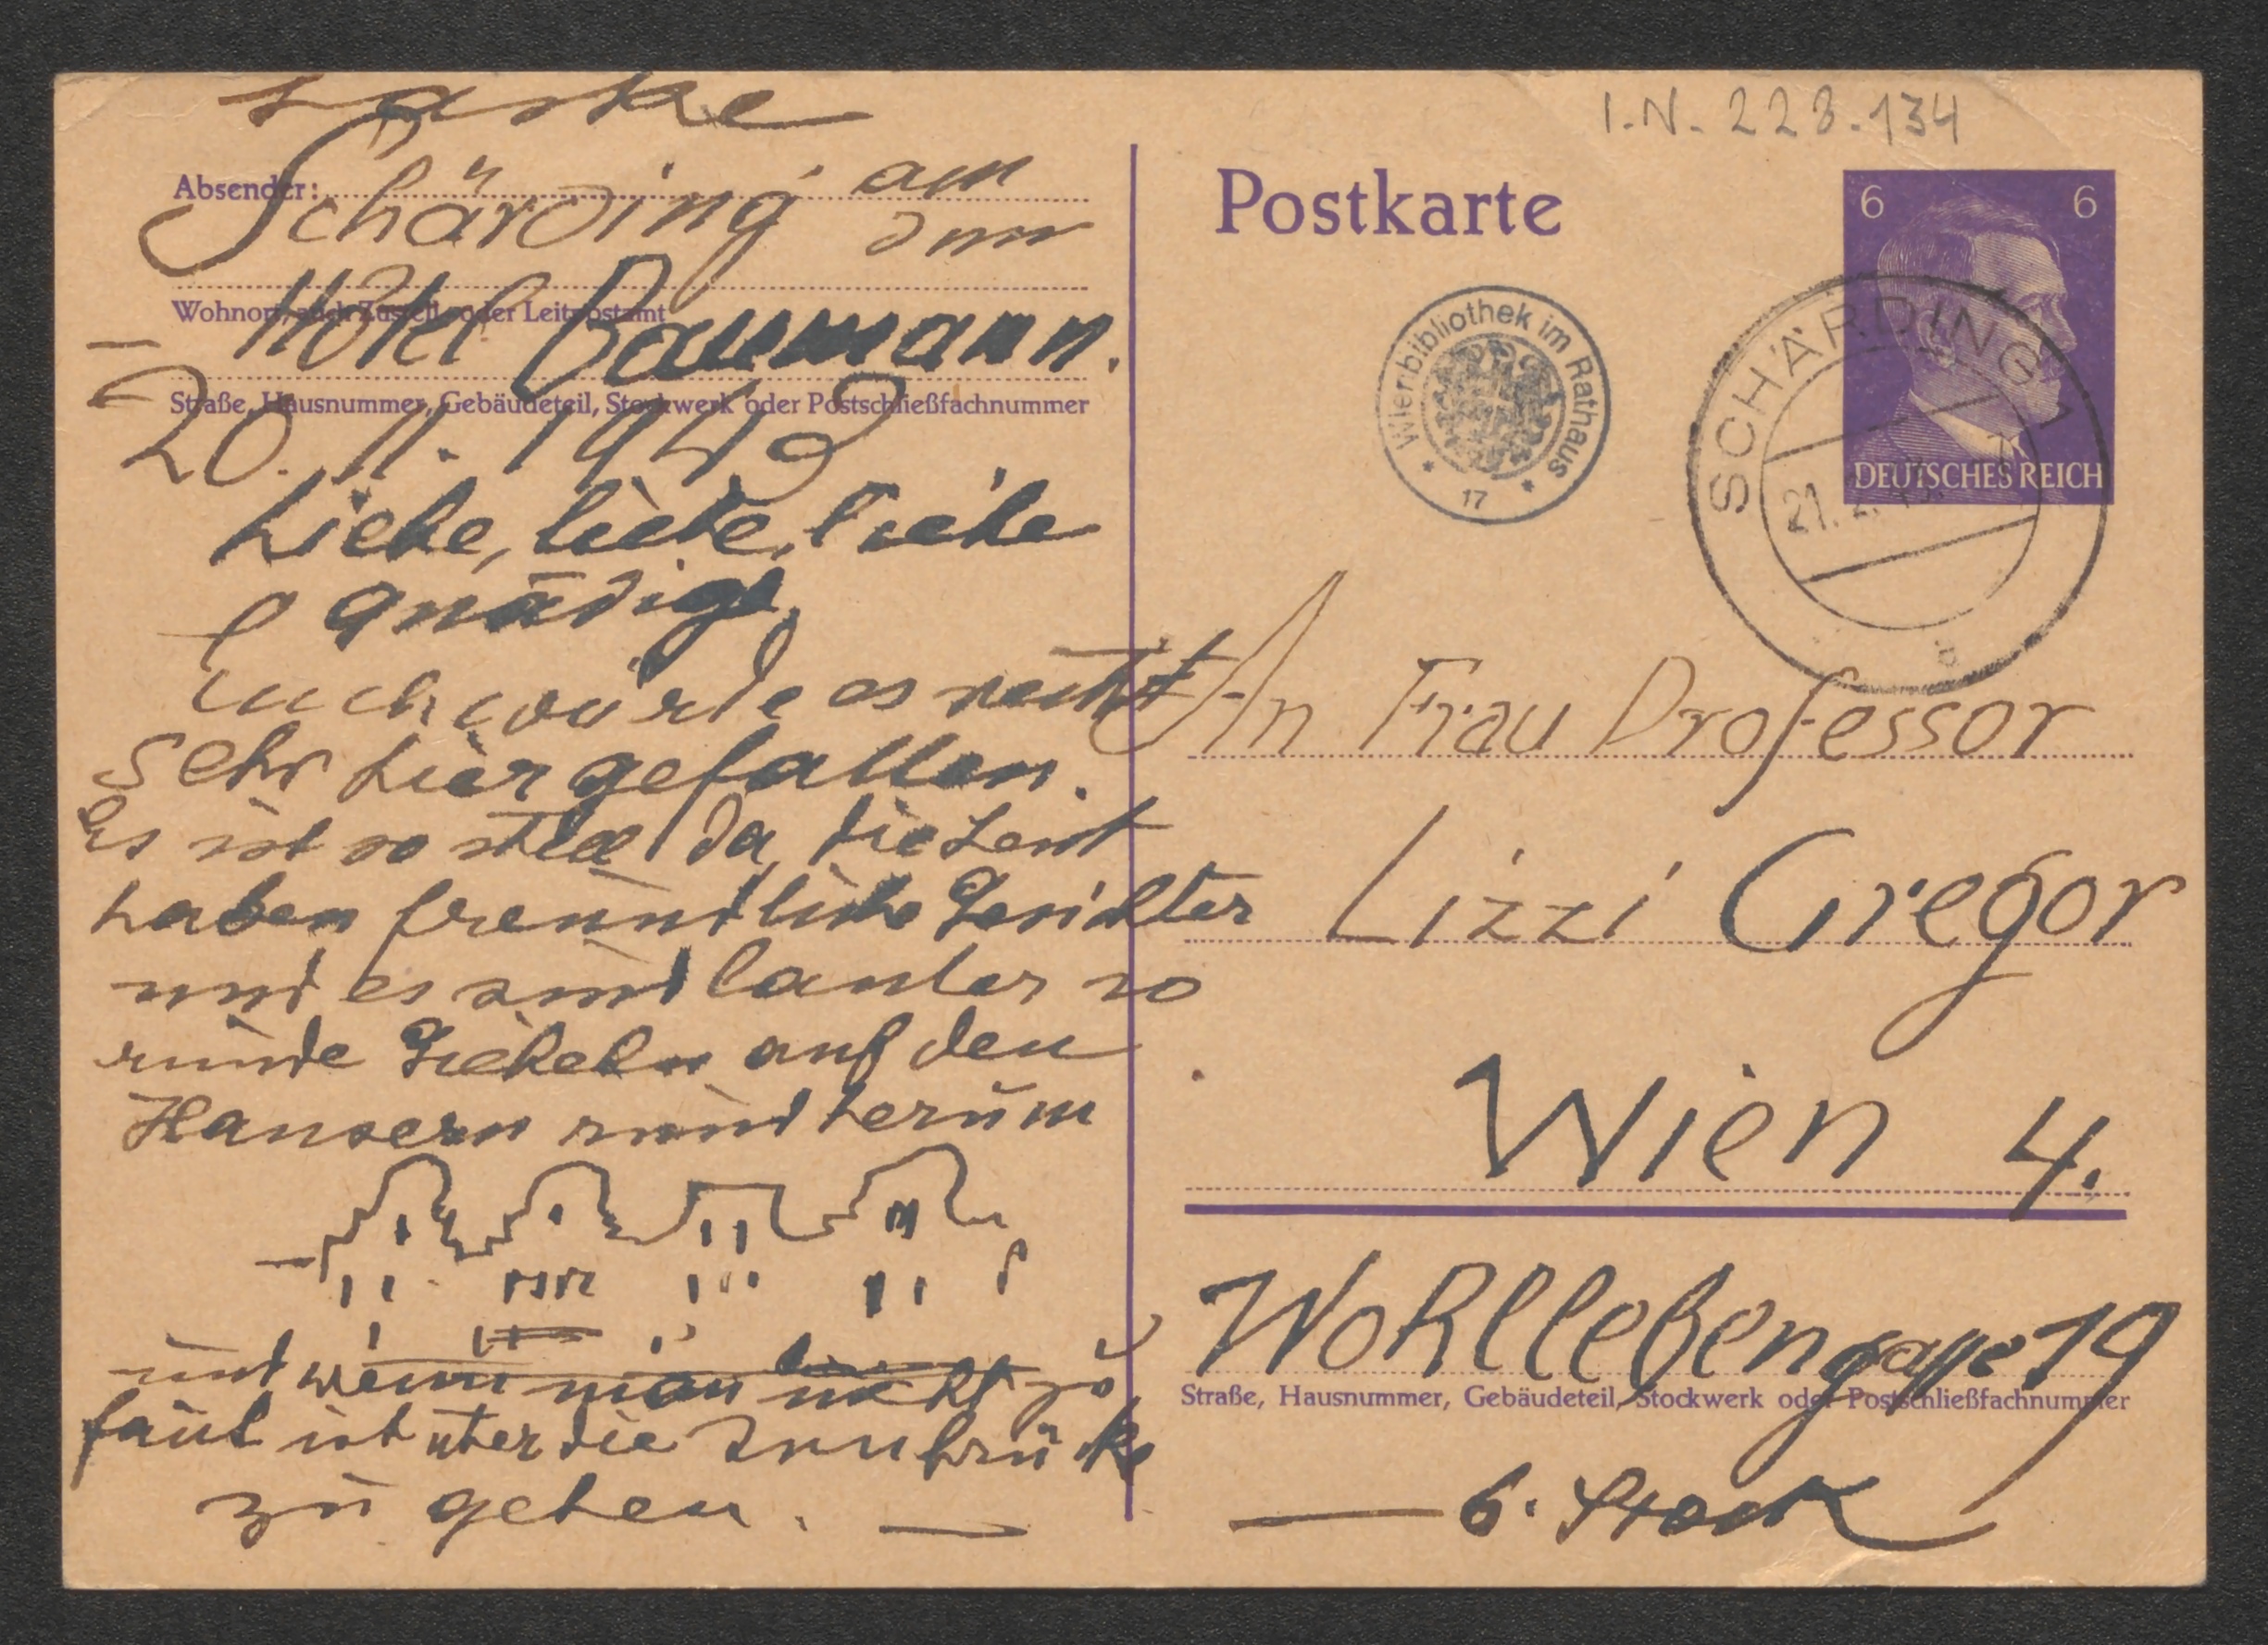 Laske
Absender:
Schärding am
Inn
Wohnort, auch Zustell- oder Leitpostamt
Hotel Baumann.
Straße, Hausnummer, Gebäudeteil, Stockwerk oder Postschließfachnummer
20. II. 1942
Liebe, liebe, liebe
gnädige,
Euch würde es recht
sehr hier gefallen.
Es ist so still da, die Leut
haben freundliche Gesichter
und es sind lauter so
runde Giebeln auf den
Hausern rundherum
und wenn man nicht zu
faul ist über die Innbrücke
zu gehen. —
I.N. 228.134
Postkarte
6 6
DEUTSCHES REICH
SCHÄRDING 1
21. 2. 4
Wienbibliothek im Rathaus
* 17 *
An Frau Professor
Lizzi Gregor
Wien 4.
Wohllebengasse 19
Straße, Hausnummer, Gebäudeteil, Stockwerk oder Postschließfachnummer
— 6. Stock